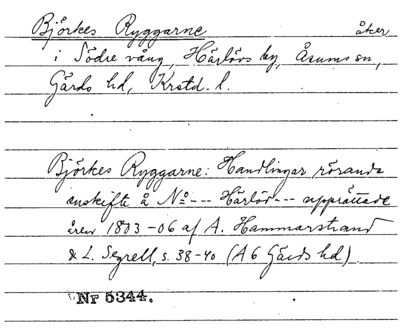 Björkes Ryggarne åker
i Södre vång, Härlövs by, Åsums sn,
Gärds hd, Krstd. l.
Björkes Ryggarne: Handlingar rörande
enskifte å No --- Härlöv --- upprättade
åren 1803-06 af A. Hammarstrand
& L. Segrell, s. 38-40 (A6 Gärds hd)
Nr 5344.